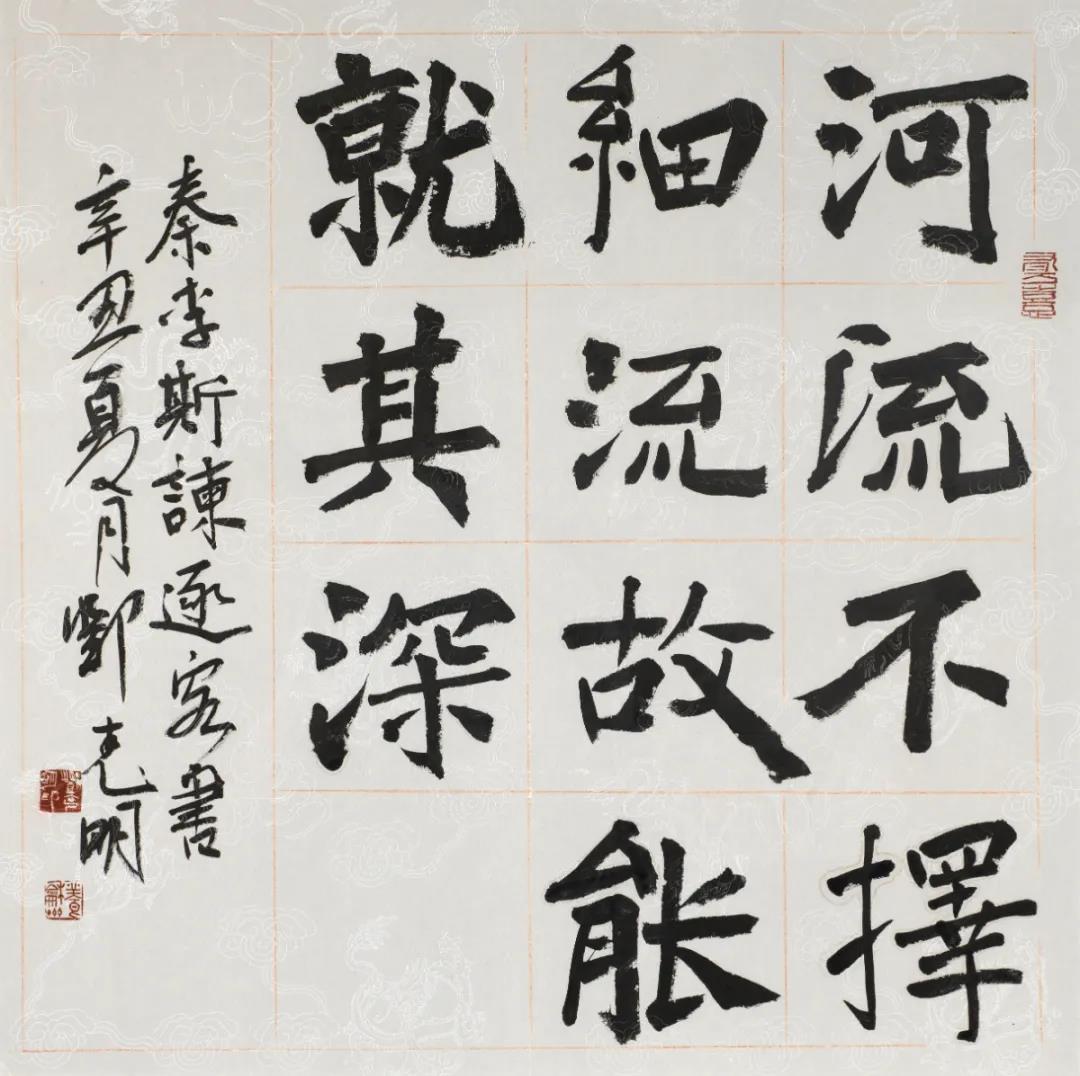 河流不擇
細流故能
就其深
秦李斯諫逐客書
辛丑夏月劉克明